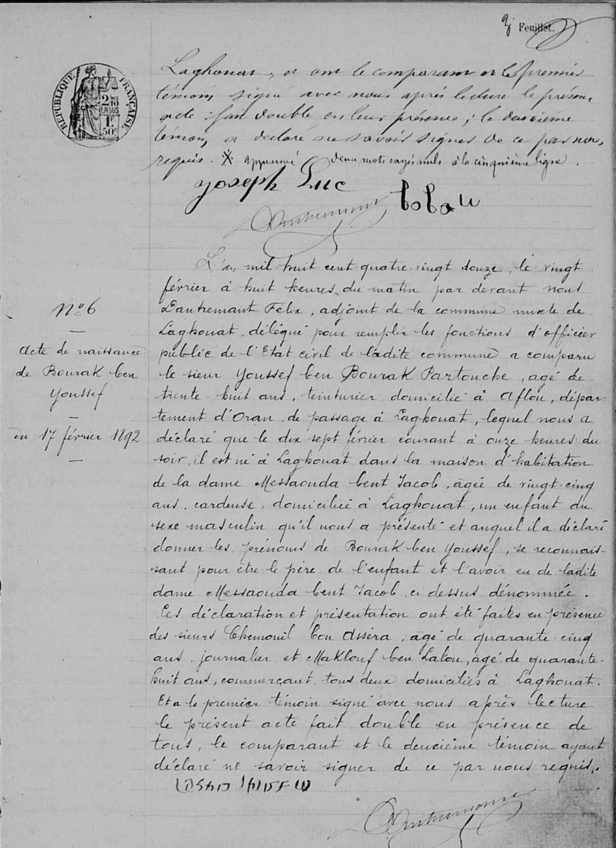 3e Feuillet.
RÉPUBLIQUE FRANÇAISE
Laghouat, et ont le comparant et le premier
témoin signé avec nous après lecture le présent
acte fait double en leur présence ; le deuxième
témoin a déclaré ne savoir signer de ce par nous
requis. X Approuvé deux mots rayés nuls à la cinquième ligne.
Joseph Luc
L'an mil huit cent quatre vingt douze, le vingt
février à huit heures du matin par devant nous
Lautremant Félix, adjoint de la commune mixte de
Laghouat, délégué pour remplir les fonctions d'officier
public de l'Etat civil de ladite commune a comparu
le sieur Youssef ben Bourak Partouche, agé de
trente huit ans, teinturier domicilié à Aflou, dépar-
tement d'Oran, de passage à Laghouat, lequel nous a
déclaré que le dix sept février courant à onze heures du
soir, il est né à Laghouat dans la maison d'habitation
de la dame Messaouda bent Jacob, agée de vingt cinq
ans, cardeuse, domiciliée à Laghouat, un enfant du
sexe masculin qu'il nous a présenté et auquel il a déclaré
donner les prénoms de Bourak ben Youssef, se reconnais-
sant pour être le père de l'enfant et l'avoir eu de ladite
dame Messaouda bent Jacob ci dessus dénommée.
Ces déclaration et présentation ont été faites en présence
des sieurs Chemouil bou Asséra, agé de quarante cinq
ans, journalier et Maklouf ben Lalou, agé de quarante
huit ans, commerçant, tous deux domiciliés à Laghouat.
Et a le premier témoin signé avec nous après lecture
le présent acte fait double en présence de
tous, le comparant et le deuxième témoin ayant
déclaré ne savoir signer de ce par nous requis.
No 6
Acte de naissance
de Bourak ben
Youssef
du 17 février 1892